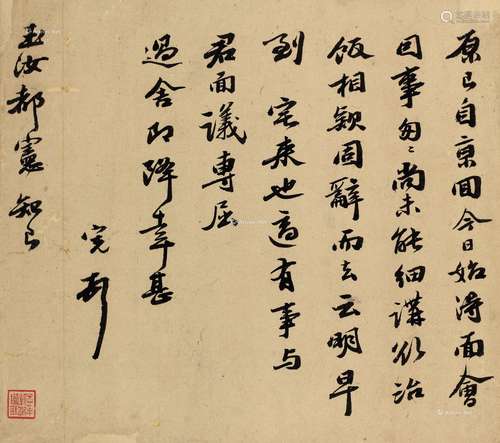 原已自東回今日始得面會
因事匆匆尚未能細講欲治
飯相欵固辭而去云明早
到 宅來也適有事与
君面議專屈
過舍即降幸甚
完頓
玉汝都憲知己